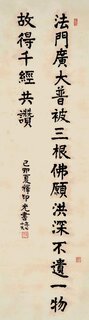 法門廣大普被三根佛願洪深不遺一物
故得千經共讚
己卯夏釋印光書